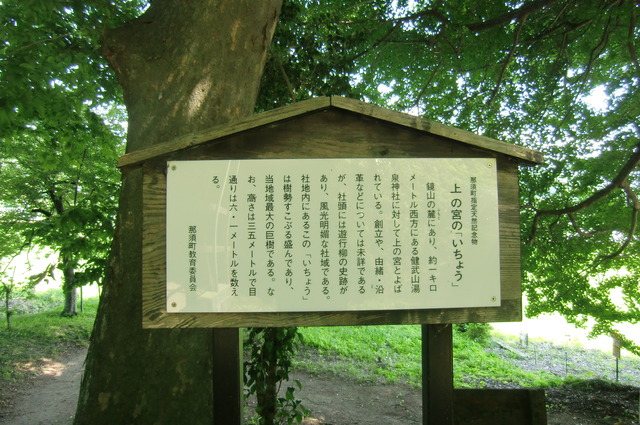 那須町指定天然記念物
上の宮の「いちょう」
鏡山の麓にあり、約一キロ
メートル西方にある健武山湯
泉神社に対して上の宮とよば
れている。創立や、由緒・沿
革などについては未詳である
が、社頭には遊行柳の史跡が
あり、風光明媚な社域である。
社地内にあるこの「いちょう」
は樹勢すこぶる盛んであり、
当地域最大の巨樹である。な
お、高さは三五メートルで目
通りは六・一メートルを数え
る。
那須町教育委員会